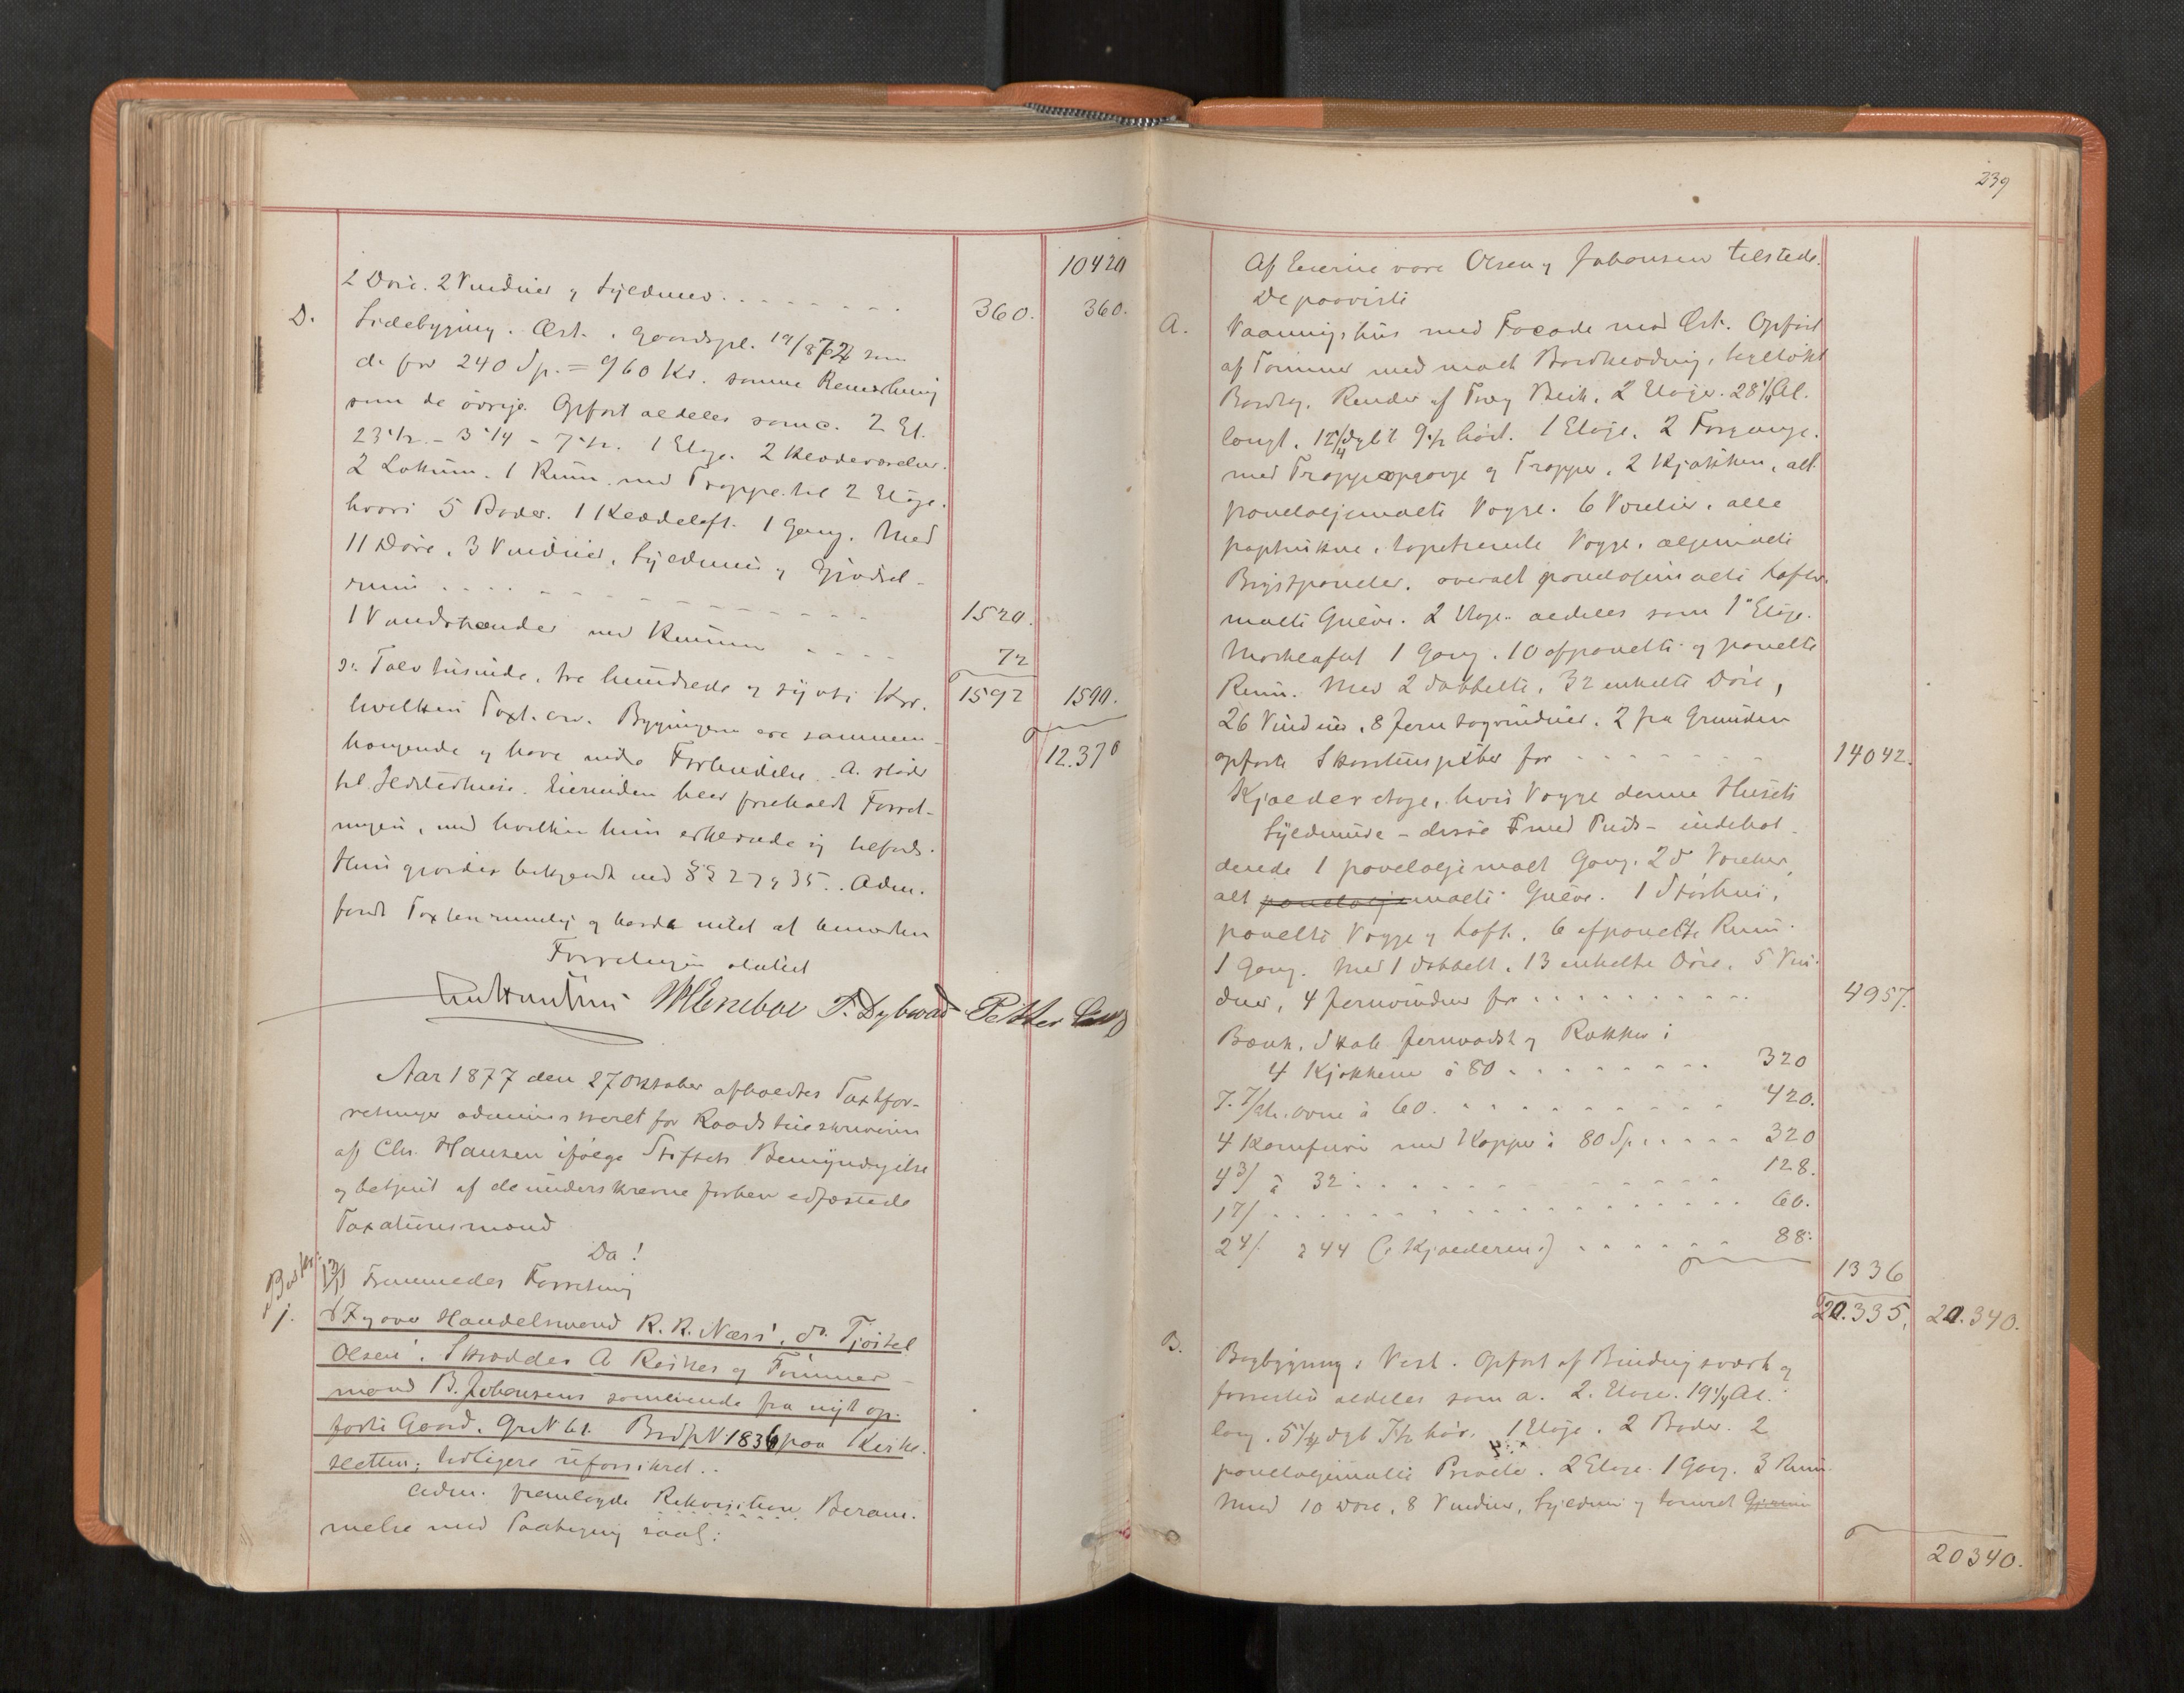 10420
2 Döre. 2 Vinduer og Syldmur . . . . . . . . 360. 360.
D. Sidebygning. Öst. i Gaardspl. 19/8 72 som
de for 240 Sp. = 960 Kr. samme Bemærkning
som de övrige. Opfört aldeles som c. 2 Et.
23 1/2 - 3 1/4 - 7 1/2. 1 Etage. 2 Klædeværelser.
2 Lokum. 1 Rum med Trappe til 2 Etage.
hvori 5 Boder. 1 Klædeloft. 1 Gang. Med
11 Döre. 3 Vinduer, Syldmur og Gjödsel-
rum . . . . . . . . . . . . 1520.
1 Vandstænder med Kumme . . . . 72
Tolv tusinde, tre hundrede og sytti Kr. 1592 1590.
hvilken Taxt. Bygningerne ere sammen-
hængende og have nedre Forbindelse. A. stöder 12.370
til. Eierinden blev foreholdt Forret-
ningen, med hvilken hun erklærede sig tilfreds.
Hun gjordes bekjendt med §§ 27 og 35. Adm.
fandt Taxten rimelig og havde intet at bemærke
Forretningen sluttet
F. Dybwad Petter
Aar 1877 den 27 Oktober afholdtes Taxtfor-
retninger administreret for Raadstueskriveren
af Chr. Hansen ifölge Stiftets Bemyndigelse
og betjent af de underskrevne forhen edfæstede
Taxationsmænd
Da!
1. Fremmedes Forretning
over Handelsmænd R. R. Næss, do. Tjöstel
Olsen, Skrædder A Reines og Tömmer-
mand B. Johansens someiende fra nyt op-
förte Gaard. Gr N 61. BrdpN 1836 paa Kirke-
sletten; tidligere uforsikret..
Adm. fremlagde Rekvisition Beram-
melse med Paategning saal:
239
Af Eierne vare Olsen og Johansen tilstede.
De paaviste
A. Vaaningshus med Facade mod Öst. Opfört
af Tömmer med malt Bordklædning, tegltækt
Bordtag. Render af Træ og Blik. 2 Etager. 28 1/4 Al.
langt. 12 1/4 dybt 9 1/2 höit. 1 Etage. 2 Forgange.
med Trappeopgange og Trapper, 2 Kjökken, alt
paneloljemalte Vægge. 6 Værelser. alle
papstrukne, tapetserede Vægge, oljemalte
Brystpaneler. overalt paneloljemalte Lofter.
malte Gulve. 2 Etage aldeles som 1e Etage.
Mörkeloft 1 Gang. 10 afpanelte og panelte
Rum. Med 2 dobbelte, 32 enkelte Döre,
26 Vinduer, 8 Jerntagvinduer. 2 fra Grunden
opförte Skorstenspiber for . . . . . . . 14042.
Kjælderetage, hvis Vægge denne Husets
Syldmure - disse med Puds - indehol-
dende 1 paneloljemalt Gang. 2 do Værelser,
alt paneloljemalte Gulve. 1 Störhus,
panelte Vægge og Loft. 6 afpanelte Rum.
1 Gang. Med 1 dobbelt, 13 enkelte Döre, 5 Vin-
duer, 4 Jernvinduer for . . . . . . . . . . 4957.
Bænk. Skab Jernvadsk og Rækker i
4 Kjökkener á 80 . . . . . . . . 320
7. 7/ Et. ovne á 60. . . . . . . . . . . 420.
4 Komfurer med Kapper á 80 Sp. . . . . 320
4 3/ á 32 . . . . . . . . . . . . 128.
1 7/ . . . . . . . . . . . . . . . . 60.
2 4/ á 44 (i Kjælderen) . . . . . . 88.
1336
20.335, 20.340.
B. Bagbygning i Vest. Opfört af Bindingsværk og
forresten aldeles som a. 2. Etage. 19 1/4 Al.
lang. 5 1/4 dyb 7 1/2 höi. 1 Etage. 2 Boder. 2
paneloljemalte Priveter. 2 Etage. 1 Gang. 3 Rum.
Med 10 Döre, 8 Vinduer, Syldmur og
20340.